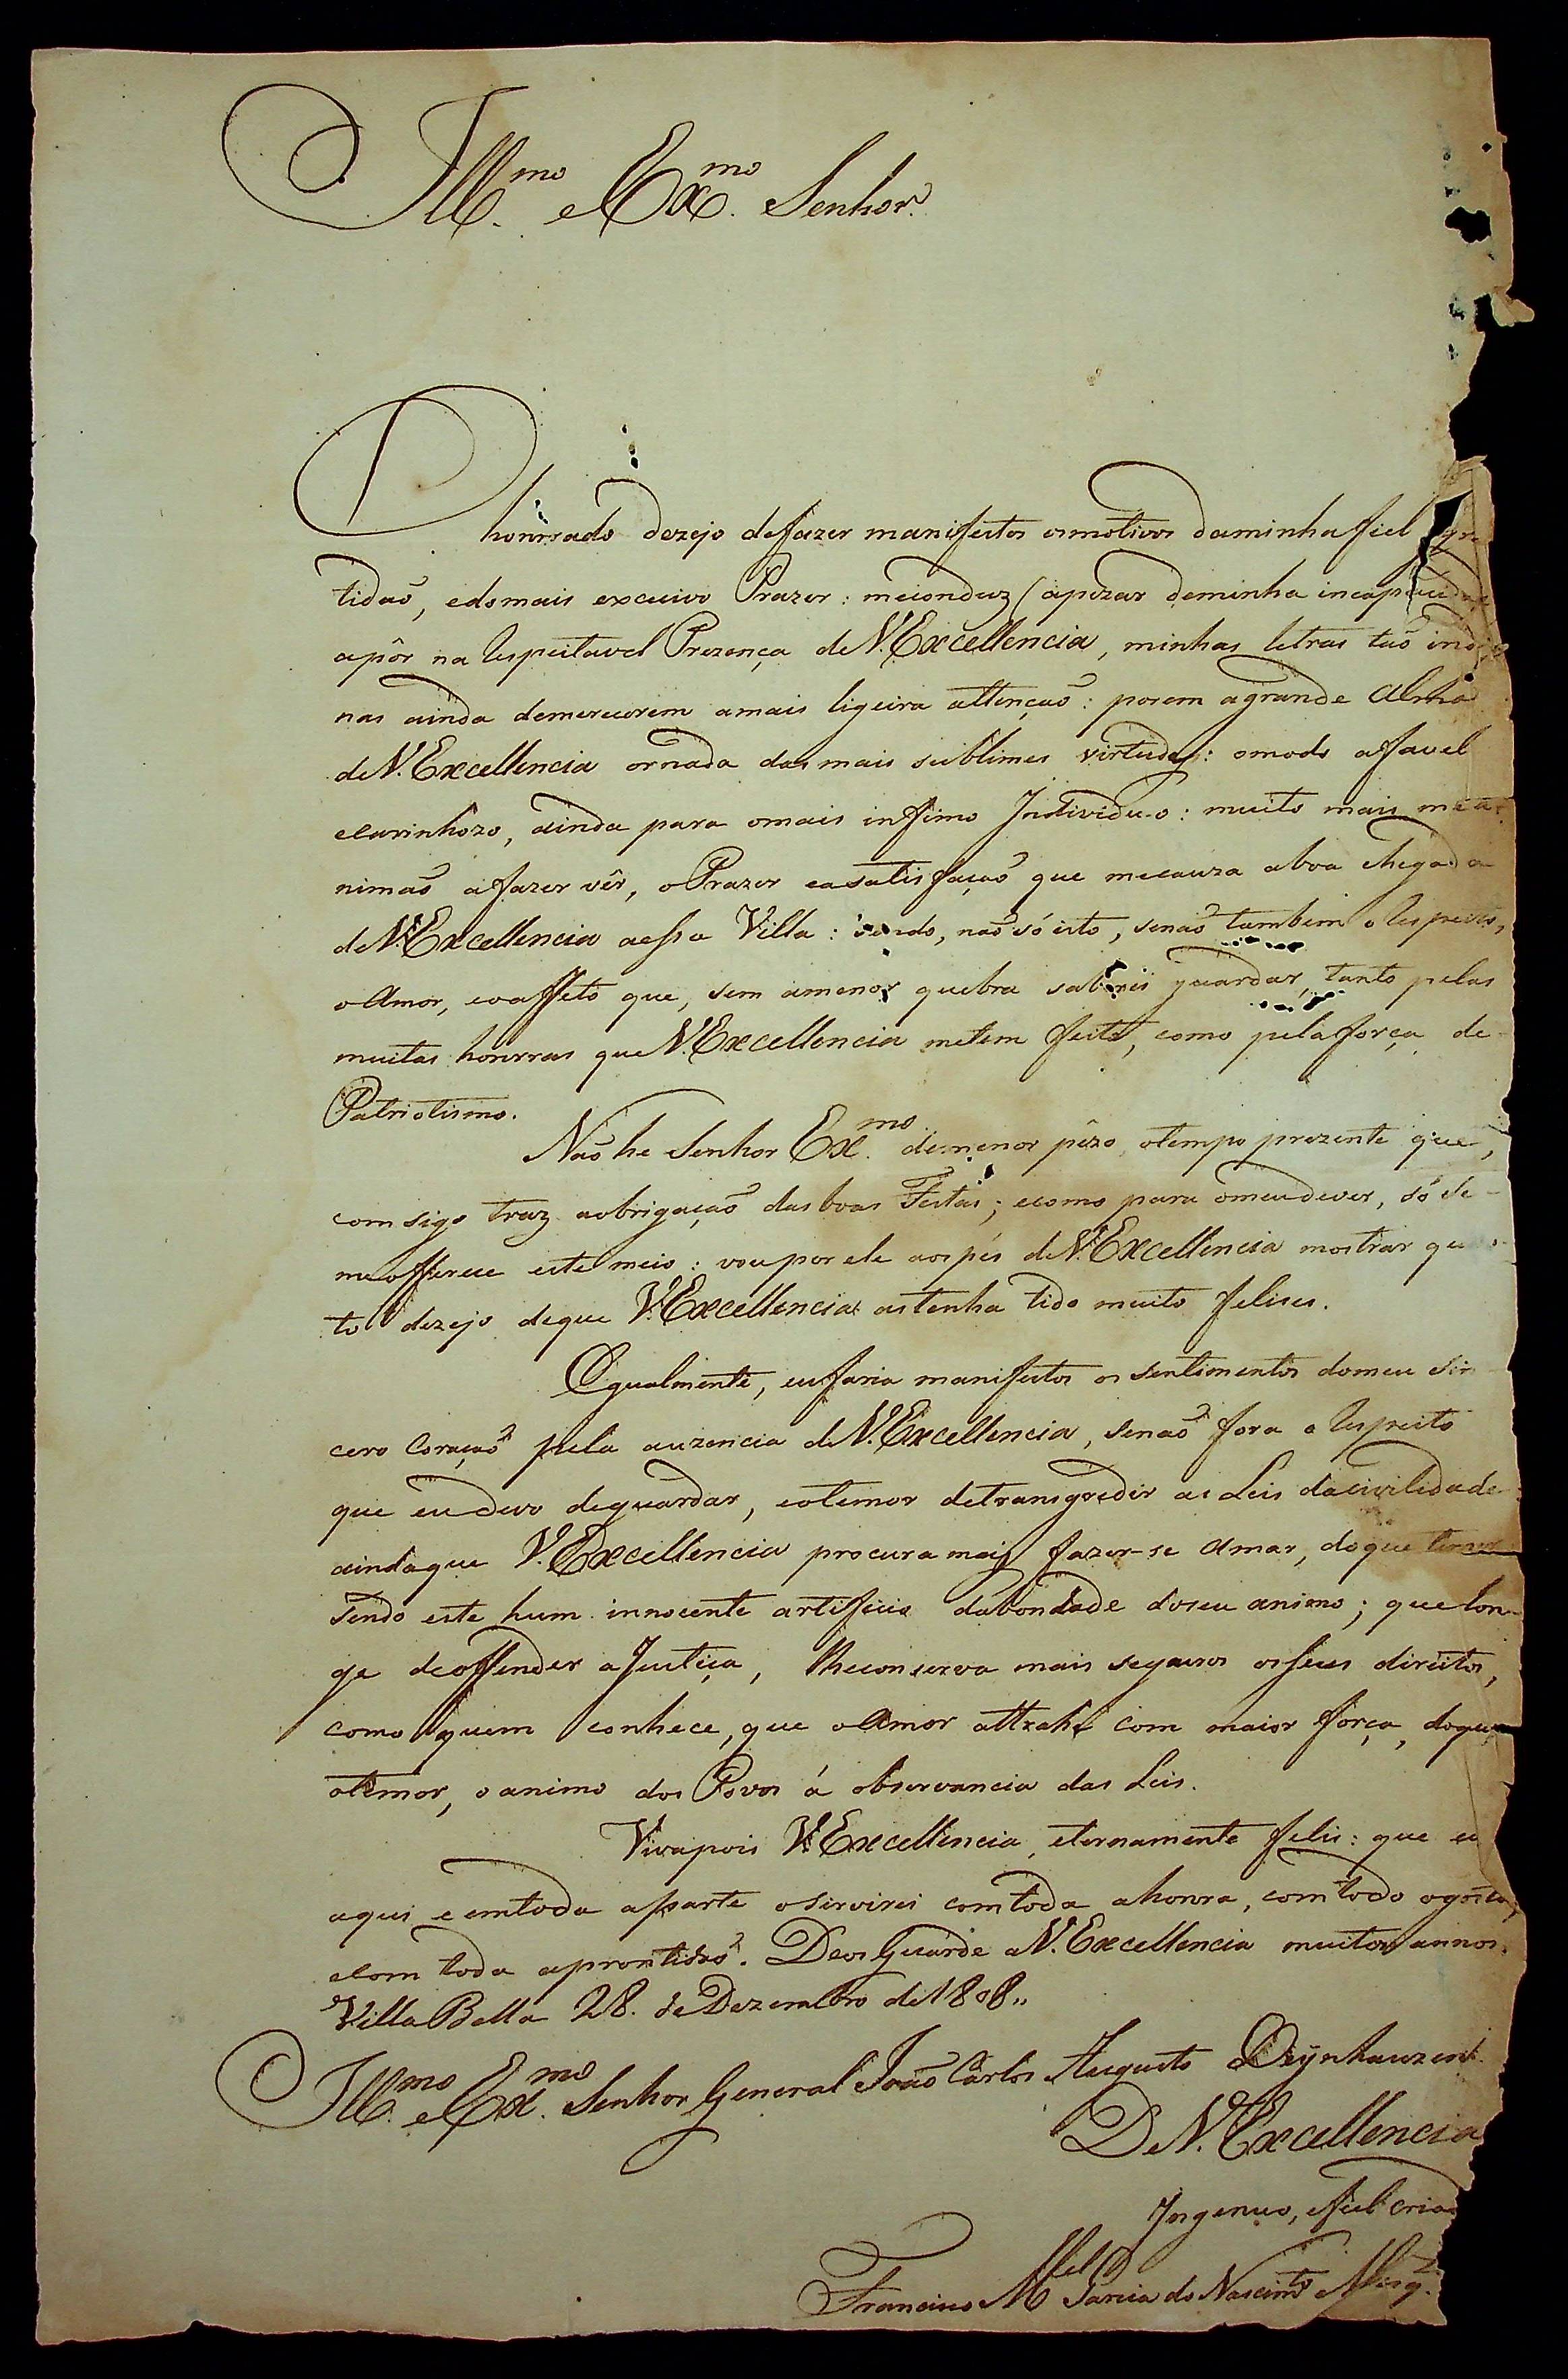 Ill.mo e Ex.mo Senhor.
O honrrado dezejo defazer manifestos osmotivos daminha fiel gra
tidaõ, edomais excecivo Prazer: meconduz (apezar deminha incapacidade
apôr na Respeitavel Prezença deV.Excellencia, minhas letras taõ indig
nas ainda demerecerem amais ligeira attençaõ: porem agrande Alma
deV.Excellencia ornada das mais sublimes virtudes: omodo afavel
ecarinhozo, ainda para omais infimo Individuo: muito mais mea
nimaõ afazer vêr, oPrazer easatisfaçaõ que mecauza aboa chegada
deV.Excellencia aessa Villa: sendo, naõ só isto, senaõ tambem o Respeito,
oAmor, eoaffeto que, sem amenor quebra saberei guardar, tanto pelas
muitas honrras queV.Excellencia metem feito, como pelaforça de
Patriotismo.
Naõ he Senhor Ex.mo demenor pêzo, otempo prezente que,
com sigo traz aobrigaçaõ das boas Festas; ecomo para omeudever, só se
meofferece este meio: vou por ele aos pés deV.Excellencia mostrar quan
to dezejo deque V.Excellencia astenha tido muito felises.
Egualmente, eufaria manifestos os sentimentos domeu sin
cero Coraçaõ pela auzencia deV.Excellencia, senaõ fora o Respeito
que eu devo deguardar, eotemor detransgredir as Leis dacivilidade
aindaque V.Excellencia procura mais fazer-se Amar, doque temer
Sendo este hum innocente artificio dabondade doseu animo; quelon
ge deoffender aJustiça, lheconserva mais seguros osseus direitos,
como quem conhece, que oAmor attrahe com maior força, doque
otemor, o animo dos Povos á observancia das Leis.
Vivapois V.Excellencia, eternamente felis: que eu
aqui e emtoda aparte oservirei comtoda ahonra, comtodo ogosto,
ecom toda aprontidaõ. Deos Guarde aV.Excellencia muitos annos.
Villa Bella 28. de Dezembro de1808..
Ill.mo e Ex.mo Senhor General Joaõ Carlos Augusto Oeÿnhauzen
DeV.Excellencia
Ingenuo, efiel cria
Francisco M.el Garcia do Nascim.to